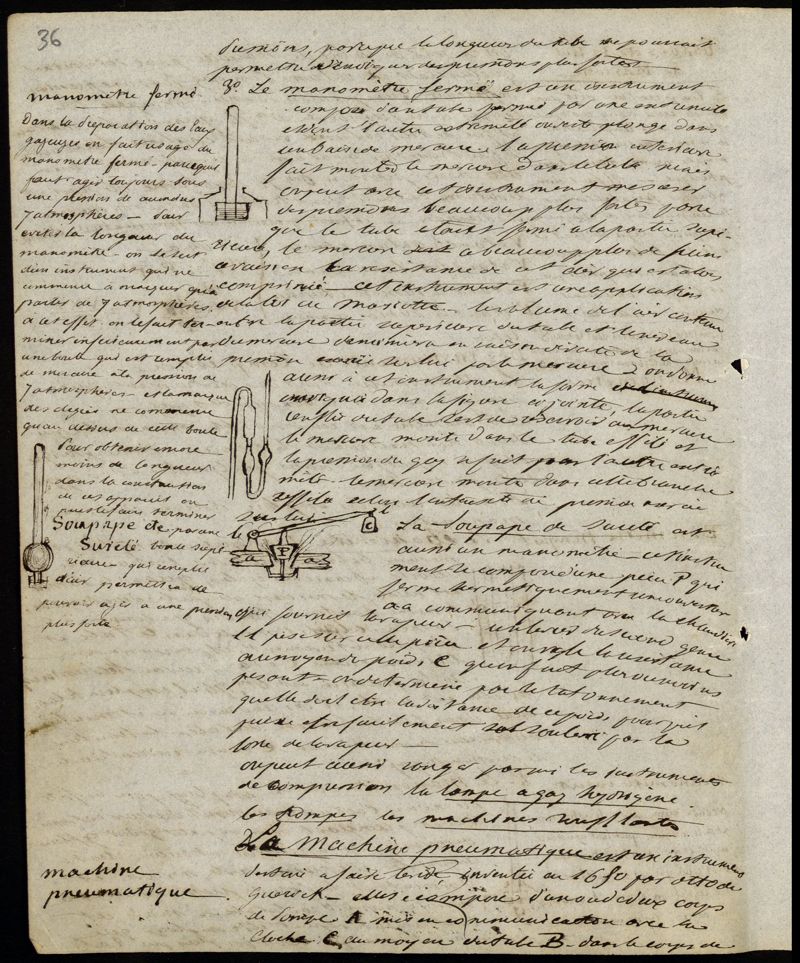 36
du moins, parceque la longueur du tube ne pourrait
permettre d'indiquer des pressions plus fortes
3º Le manomètre fermé est un instrument
composé d'un tube fermé par une extremité
et dont l'autre extremité ouverte plonge dans
un bain de mercure la pression extérieure
fait monter le mercure dans le tube mais
on peut avec cet instrument mesurer
des pressions beaucoup plus fortes parce
que le tube etant fermé a la partie supé-
rieure, le mercure a beaucoup plus de peine
a vaincre la resistance de cet air qui est alors
comprimé cet instrument est une application
de la loi de Mariotte le volume de l'air contenu
entre la partie superieure du tube et le niveau
du mercure diminuera en raison directe de la
pression exercée sur lui par le mercure on donne
aussi a cet instrument la forme
indiquée dans la figure cijointe, la partie
renflée du tube sert de reservoir au mercure
le mercure monte dans le tube effilé et
la pression du gaz se fait par l'autre extré-
mité le mercure monte dans cette branche
effilée selon l'intensité de pression exercée
sur lui
La Soupape de Sureté est
aussi un manomètre cet instru
ment se compose d'une pièce P qui
ferme hermetiquement une ouverture
aa communiquant avec la chaudière
qui fournit la vapeur un levier du second genre
pese sur cette pièce et on regle la resistance
au moyen du poids C qu'on fait plus ou moins
pesant on determine par le tatonnement
quelle doit etre la distance de ce poids pour qu'il
puisse etre soulevé par la
force de la vapeur
on peut aussi ranger parmi les instruments
de compression la lampe a gaz hydrogène
les pompes les machines soufflantes
La Machine pneumatique est un instrument
destiné a faire le vide inventée en 1650 par otto de
guerick elle se compose d'un ou deux corps
de pompe A mis en communication avec la
Cloche C au moyen du tube B dans le corps de
manomètre fermé
Dans la préparation des eaux
gazeuses on fait usage du
manomètre fermé parcequ'il
faut agir toujours sous
une pression de au moins
7 atmosphères pour
eviter la longueur du
manomètre on se sert
d'un instrument qui ne
commence à marquer qu'a
partir de 7 atmosphères.
a cet effet on le fait ter-
miner inferieurement par
une boule qui est remplie
de mercure a la pression de
7 atmosphères et la marque
des degrés ne commence
qu'au dessus de cette boule
Pour obtenir encore
moins de longueur
dans la construction
de ces appareils on
peut les faire terminer
par une
boule supé-
rieure qui remplie
d'air permettra de
pouvoir agir a une pression
plus forte
Soupape de
Sureté
P
a
a
b
C
machine
pneumatique